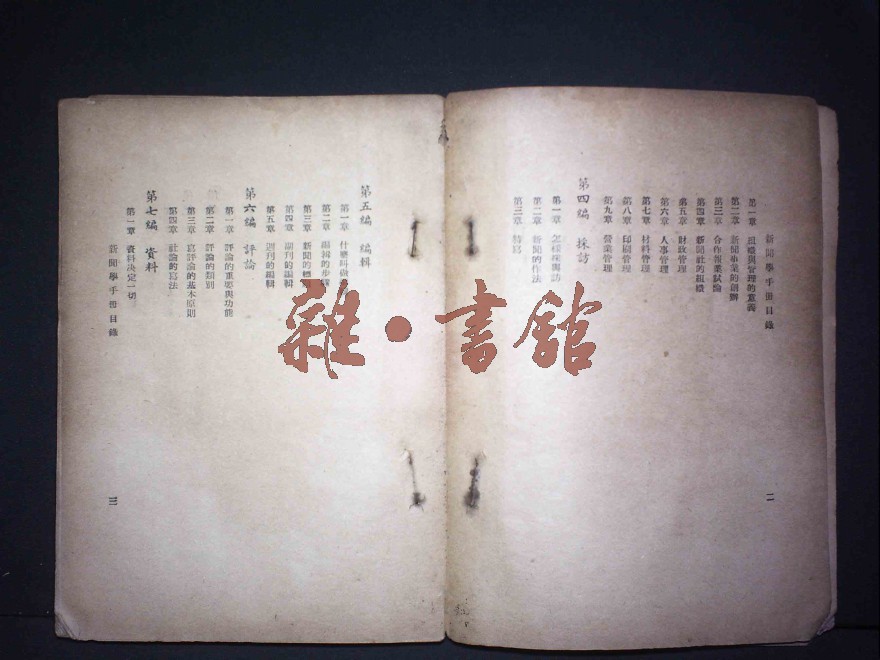 新聞學手冊目錄
第一章 組織與管理的意義
第二章 新聞事業的創辦
第三章 合作報業試論
第四章 新聞社的組織
第五章 財政管理
第六章 人事管理
第七章 材料管理
第八章 印刷管理
第九章 營業管理
第四編 採訪
第一章 怎樣採訪
第二章 新聞的作法
第三章 特寫
二
第五編 編輯
第一章 什麼叫做
第二章 編輯的步驟
第三章 新聞的標題
第四章 副刊的編輯
第五章 期刊的編輯
第六編 評論
第一章 評論的重要與功能
第二章 評論的類別
第三章 寫評論的基本原則
第四章 社論的寫法
第七編 資料
第一章 資料決定一切
新聞學手冊目錄
三
雜·書館